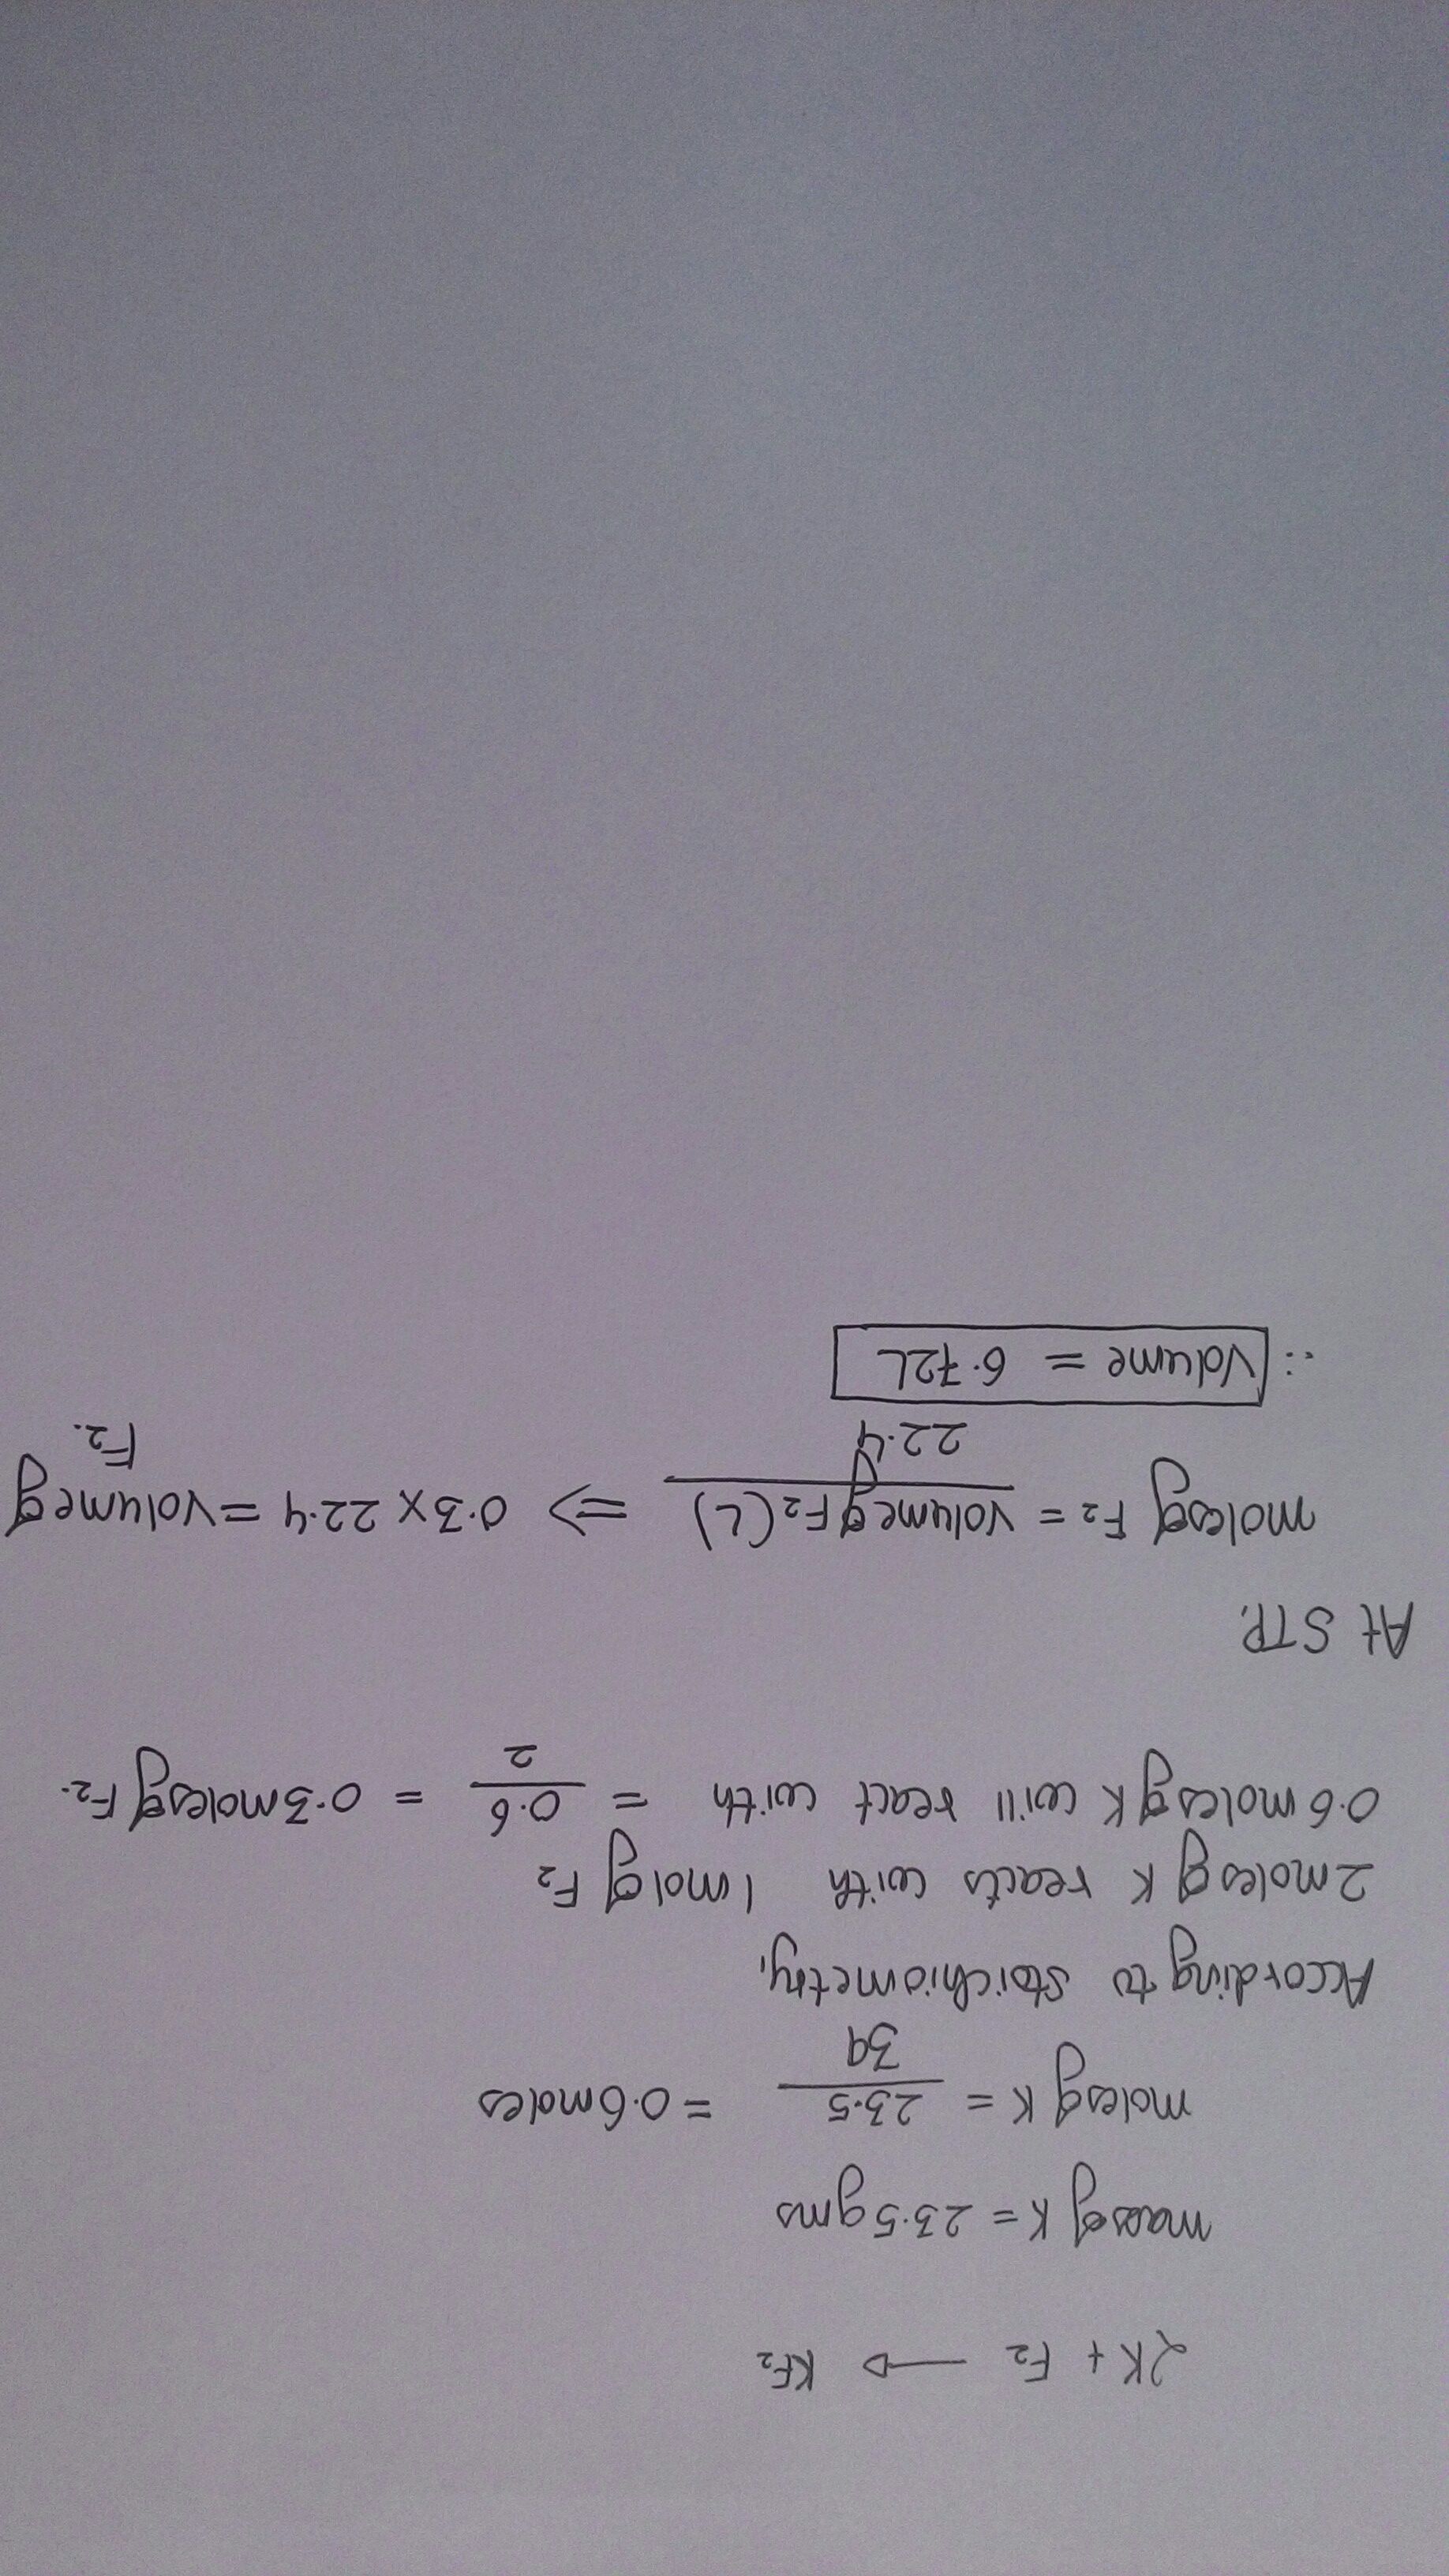 2K + F₂ → KF₂
mass of K = 23.5 gms
moles of K = 23.5/39 = 0.6 moles
According to stoichiometry,
2 moles of K reacts with 1 mol of F₂
0.6 moles of K will react with = 0.6/2 = 0.3 moles of F₂.
At STP,
moles of F₂ = volume of F₂ (L)/22.4 ⇒ 0.3 x 22.4 = volume of F₂.
∴ Volume = 6.72L